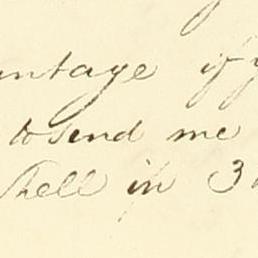 antage if y
to send me
Shell in 3